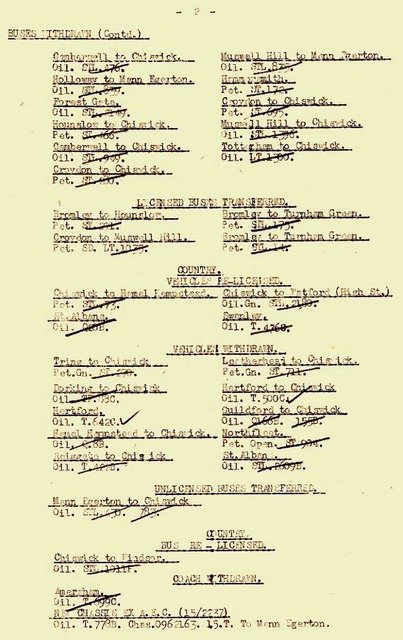 - 2 -
BUSES WITHDRAWN (Contd.)
Camberwell to Chiswick. Muswell Hill to Mann Egerton.
Oil. STL. Oil. STL.
Holloway to Mann Egerton. Hammersmith.
Oil. STL. Pet. ST.172.
Forest Gate. Croydon to Chiswick.
Oil. STL. Pet. LT.695.
Hounslow to Chiswick. Muswell Hill to Chiswick.
Pet. ST. Oil. STL.1396.
Camberwell to Chiswick. Tottenham to Chiswick.
Oil. STL. Oil. LT.1300.
Croydon to Chiswick.
Pet. ST.
LICENSED BUSES TRANSFERRED.
Bromley to Hounslow. Bromley to Turnham Green.
Pet. ST. Pet. STL.
Croydon to Muswell Hill. Bromley to Turnham Green.
Pet. SD. LT.1039. Pet. STL.14.
COUNTRY.
VEHICLES RE-LICENSED.
Chiswick to Hemel Hempstead. Chiswick to Watford (High St.)
Pet. STL. Pet.Gn. STL.
St.Albans. Swanley.
Oil. Oil. T.476C.
VEHICLES WITHDRAWN.
Tring to Chiswick Leatherhead to Chiswick.
Pet.Gn. ST. Pet.Gn. ST.711.
Dorking to Chiswick Hertford to Chiswick
Oil. Oil. T.500C.
Hertford. Guildford to Chiswick
Oil. T.642C. Oil. Q168B. 155B.
Hemel Hempstead to Chiswick. Northfleet.
Oil. Pet. Open. ST.
Reigate to Chiswick St.Alban.
Oil. T. Oil. STL.
UNLICENSED BUSES TRANSFERRED.
Mann Egerton to Chiswick
Oil. STL.
COUNTRY.
BUS RE - LICENSED.
Chiswick to Windsor.
Oil. STL.
COACH WITHDRAWN.
Amersham.
Oil. T.699C.
NEW CHASSIS EX A.E.C. (15/2237)
Oil. T.778B. Chas.0962163. 15.T. To Mann Egerton.